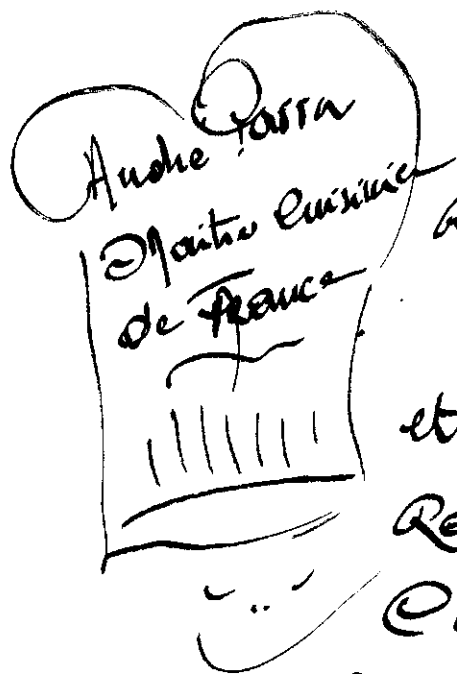 André Parra
Maitre Cuisinier
de France
et
Re